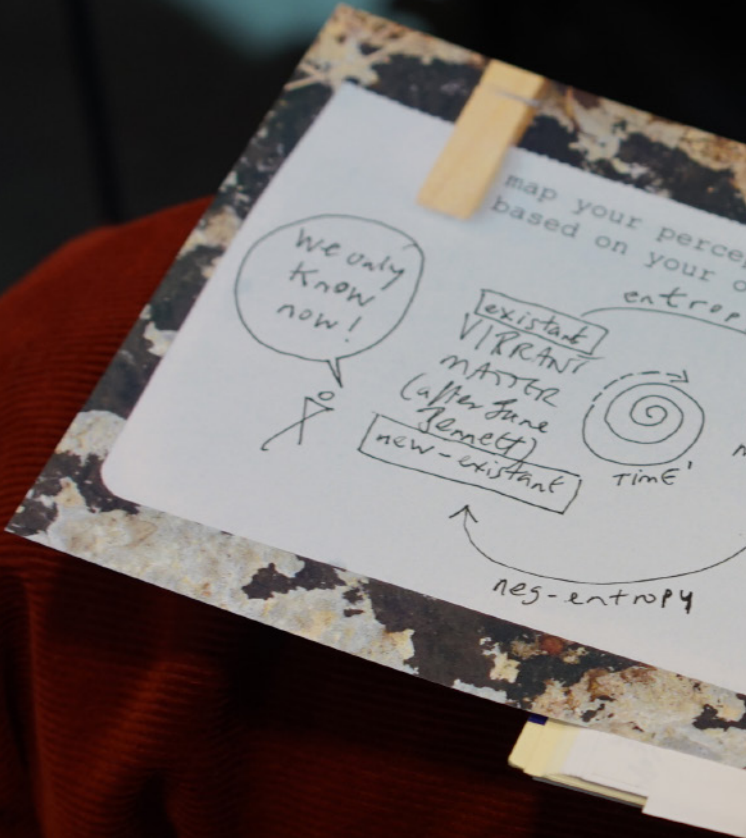 map your
based on your
We only
Know
now!
entrop
existant
VIBRANT
MATTER
(after Jane
Bennett)
new-existant
TIME'
neg-entropy